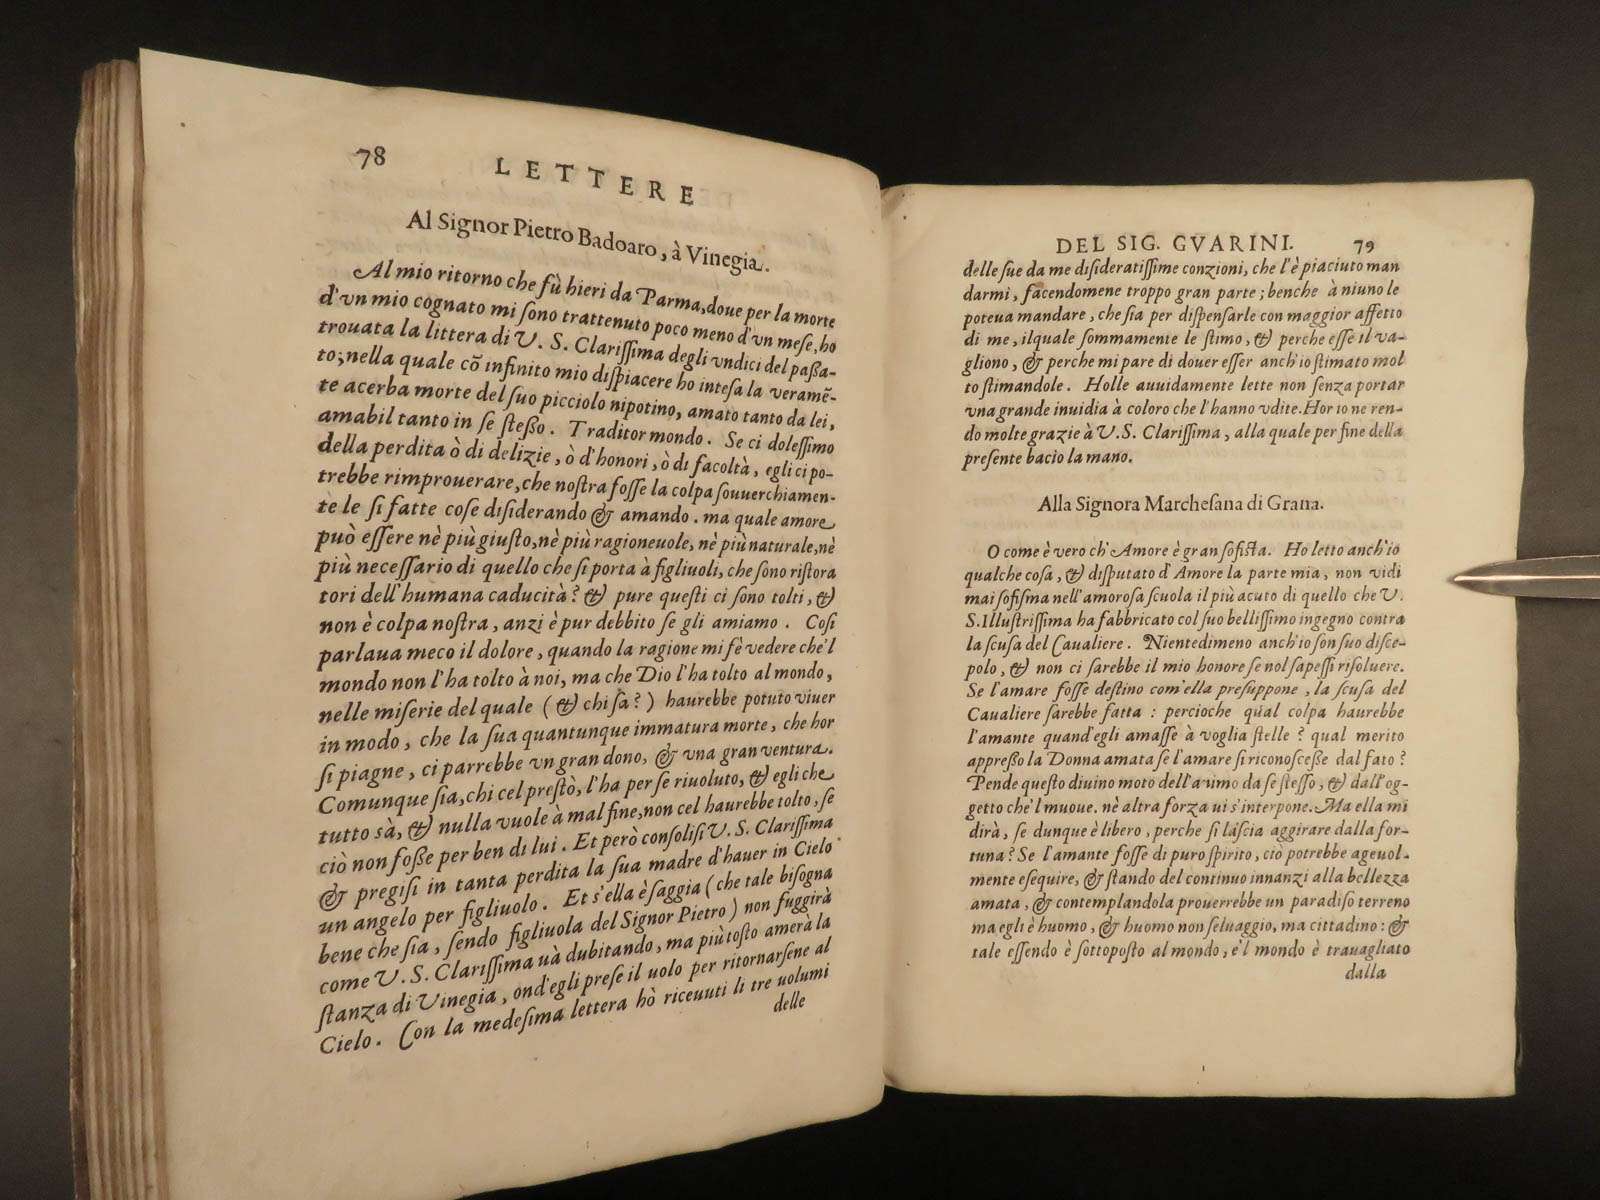 78
LETTERE
Al Signor Pietro Badoaro, à Vinegia.
Al mio ritorno che fù hieri da Parma, doue per la morte
d'vn mio cognato mi ſono trattenuto poco meno d'vn meſe, ho
trouata la littera di V. S. Clariſſima degli vndici del paſſa-
to; nella quale cō infinito mio diſpiacere ho inteſa la veramē-
te acerba morte del ſuo picciolo nipotino, amato tanto da lei,
amabil tanto in ſe ſteſſo. Traditor mondo. Se ci doleſſimo
della perdita ò di delizie, ò d'honori, ò di facoltà, egli ci po-
trebbe rimprouerare, che noſtra foſſe la colpa ſouuerchiamen-
te le ſi fatte coſe diſiderando & amando. ma quale amore
può eſſere nè più giuſto, nè più ragioneuole, nè più naturale, nè
più neceſſario di quello che ſi porta à figliuoli, che ſono riſtora
tori dell'humana caducità? & pure queſti ci ſono tolti, &
non è colpa noſtra, anzi è pur debbito ſe gli amiamo. Coſi
parlaua meco il dolore, quando la ragione mi fè vedere che'l
mondo non l'ha tolto à noi, ma che Dio l'ha tolto al mondo,
nelle miſerie del quale (& chi ſà?) haurebbe potuto viuer
in modo, che la ſua quantunque immatura morte, che hor
ſi piagne, ci parrebbe vn gran dono, & vna gran ventura.
Comunque ſia, chi cel preſtò, l'ha per ſe riuoluto, & egli che
tutto sà, & nulla vuole à mal fine, non cel haurebbe tolto, ſe
ciò non foſſe per ben di lui. Et però conſoliſi V. S. Clariſſima
& pregiſi in tanta perdita la ſua madre d'hauer in Cielo
un angelo per figliuolo. Et s'ella è ſaggia (che tale biſogna
bene che ſia, ſendo figliuola del Signor Pietro) non fuggirà
come V. S. Clariſſima uà dubitando, ma più toſto amerà la
ſtanza di Vinegia, ond'egli preſe il uolo per ritornarſene al
Cielo. Con la medeſima lettera hò riceuuti li tre uolumi
delle
DEL SIG. GVARINI. 79
delle ſue da me diſideratiſſime conzioni, che l'è piaciuto man
darmi, facendomene troppo gran parte; benche à niuno le
poteua mandare, che ſia per diſpenſarle con maggior affetto
di me, ilquale ſommamente le ſtimo, & perche eſſe il va-
gliono, & perche mi pare di douer eſſer anch'io ſtimato mol
to ſtimandole. Holle auuidamente lette non ſenza portar
vna grande inuidia à coloro che l'hanno vdite. Hor io ne ren-
do molte grazie à V. S. Clariſſima, alla quale per fine della
preſente bacio la mano.
Alla Signora Marcheſana di Grana.
O come è vero ch'Amore è gran ſofiſta. Ho letto anch'io
qualche coſa, & diſputato d'Amore la parte mia, non vidi
mai ſofiſma nell'amoroſa ſcuola il più acuto di quello che V.
S. Illuſtriſſima ha fabbricato col ſuo belliſſimo ingegno contra
la ſcuſa del Caualiere. Nientedimeno anch'io ſon ſuo diſce-
polo, & non ci ſarebbe il mio honore ſe nol ſapeſſi riſoluere.
Se l'amare foſſe deſtino com'ella preſuppone, la ſcuſa del
Caualiere ſarebbe fatta: percioche qual colpa haurebbe
l'amante quand'egli amaſſe à voglia ſtelle? qual merito
appreſſo la Donna amata ſe l'amare ſi riconoſceſſe dal fato?
Pende queſto diuino moto dell'animo da ſe ſteſſo, & dall'og-
getto che'l muoue. nè altra forza ui s'interpone. Ma ella mi
dirà, ſe dunque è libero, perche ſi laſcia aggirare dalla for-
tuna? Se l'amante foſſe di puro ſpirito, ciò potrebbe ageuol-
mente eſequire, & ſtando del continuo innanzi alla bellezza
amata, & contemplandola prouerrebbe un paradiſo terreno
ma egli è huomo, & huomo non ſeluaggio, ma cittadino: &
tale eſſendo è ſottopoſto al mondo, e'l mondo è trauagliato
dalla